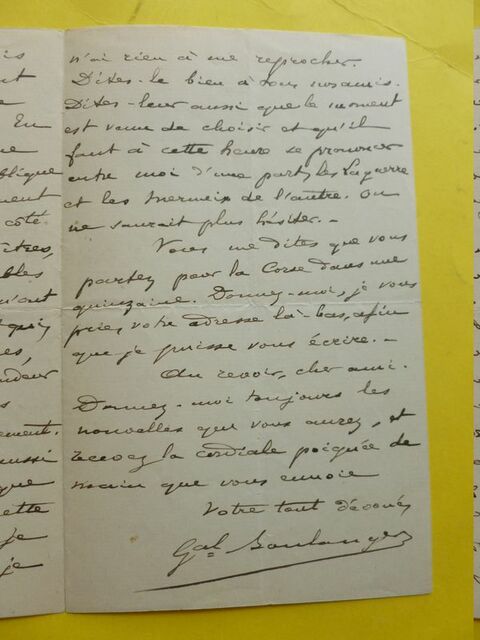 is
nt
e
En
ne
blique
ment
côté.
îtres,
bles
n'ont
quoi
es,
ndeur
s
ement.
aussi
que
ette
je
je
n'ai rien à me reprocher.
Dites-le bien à tous nos amis.
Dites-leur aussi que le moment
est venu de choisir et qu'il
faut à cette heure se prononcer
entre moi d'une part, les Laguerre
et les Mermeix de l'autre. On
ne saurait plus hésiter. -
Vous me dites que vous
partez pour la Corse dans une
quinzaine. Donnez-moi, je vous
prie, votre adresse là-bas, afin
que je puisse vous écrire. -
Au revoir, cher ami.
Donnez-moi toujours les
nouvelles que vous aurez, et
recevez la cordiale poignée de
main que vous envoie
Votre tout dévoué
Gal Boulanger